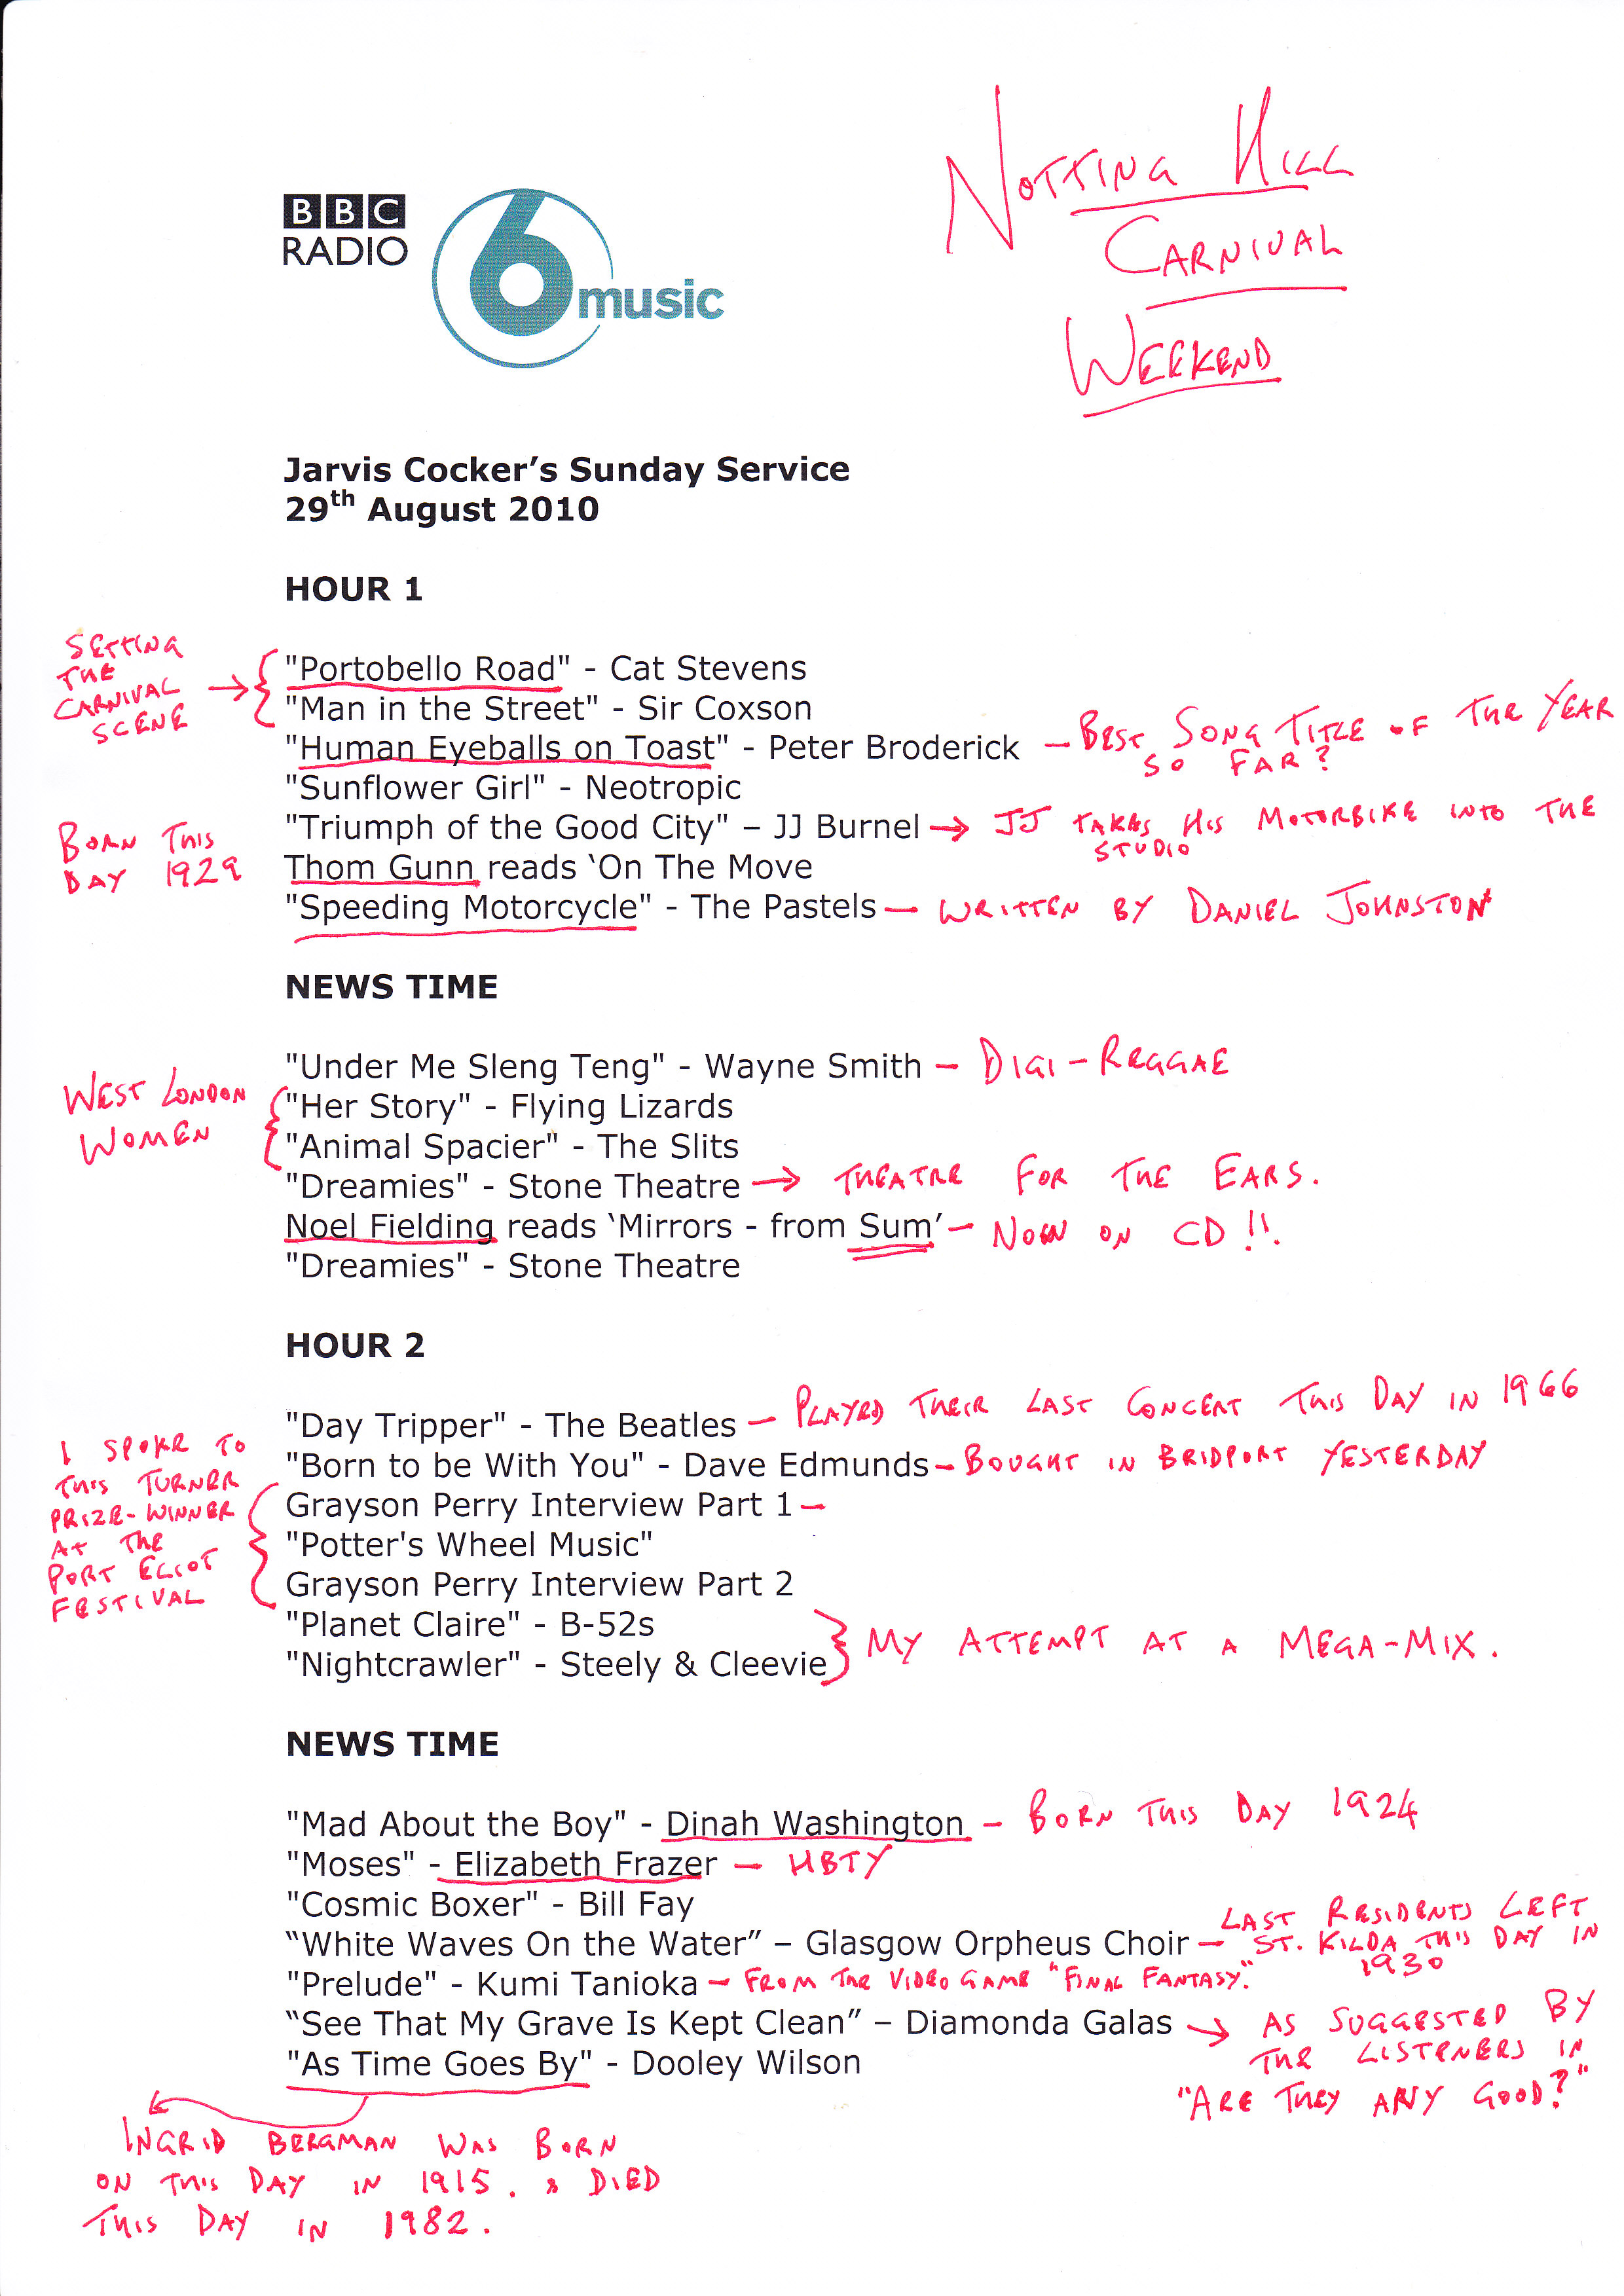 NOTTING HILL
CARNIVAL
WEEKEND
BBC
RADIO
6
music
Jarvis Cocker's Sunday Service
29th August 2010
HOUR 1
SETTING
THE
CARNIVAL
SCENE
"Portobello Road" - Cat Stevens
"Man in the Street" - Sir Coxson
"Human Eyeballs on Toast" - Peter Broderick – BEST SONG TITLE OF THE YEAR
SO FAR?
"Sunflower Girl" - Neotropic
"Triumph of the Good City" – JJ Burnel → JJ TAKES HIS MOTORBIKE INTO THE
STUDIO
BORN THIS
DAY 1929
Thom Gunn reads ‘On The Move
"Speeding Motorcycle" - The Pastels – WRITTEN BY DANIEL JOHNSTON
NEWS TIME
"Under Me Sleng Teng" - Wayne Smith – DIGI-REGGAE
WEST LONDON
WOMEN
"Her Story" - Flying Lizards
"Animal Spacier" - The Slits
"Dreamies" - Stone Theatre → THEATRE FOR THE EARS.
Noel Fielding reads ‘Mirrors - from Sum’ – NOW ON CD!!
"Dreamies" - Stone Theatre
HOUR 2
"Day Tripper" - The Beatles – PLAYED THEIR LAST CONCERT THIS DAY IN 1966
"Born to be With You" - Dave Edmunds – BOUGHT IN BRIDPORT YESTERDAY
I SPOKE TO
THIS TURNER
PRIZE-WINNER
AT THE
PORT ELIOT
FESTIVAL
Grayson Perry Interview Part 1 –
"Potter's Wheel Music"
Grayson Perry Interview Part 2
"Planet Claire" - B-52s
"Nightcrawler" - Steely & Cleevie
MY ATTEMPT AT A MEGA-MIX.
NEWS TIME
"Mad About the Boy" - Dinah Washington – BORN THIS DAY 1924
"Moses" - Elizabeth Frazer – HBTY
"Cosmic Boxer" - Bill Fay
“White Waves On the Water” – Glasgow Orpheus Choir – LAST RESIDENTS LEFT
ST. KILDA THIS DAY IN
1930
"Prelude" - Kumi Tanioka – FROM THE VIDEO GAME "FINAL FANTASY."
“See That My Grave Is Kept Clean” – Diamonda Galas → AS SUGGESTED BY
THE LISTENERS IN
"ARE THEY ANY GOOD?"
"As Time Goes By" - Dooley Wilson
INGRID BERGMAN WAS BORN
ON THIS DAY IN 1915. & DIED
THIS DAY IN 1982.